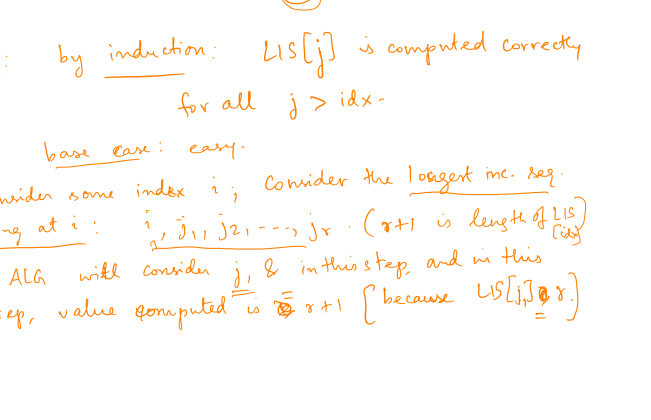 : by induction: LIS[j] is computed correctly
for all j > idx.
base case: easy.
nsider some index i; Consider the longest inc. seq.
ng at i : i, j1, j2, ---, jr. (r+1 is length of LIS[idx])
ALG will consider j1 & in this step, and in this
ep, value computed is r+1 [because LIS[j1] r.]